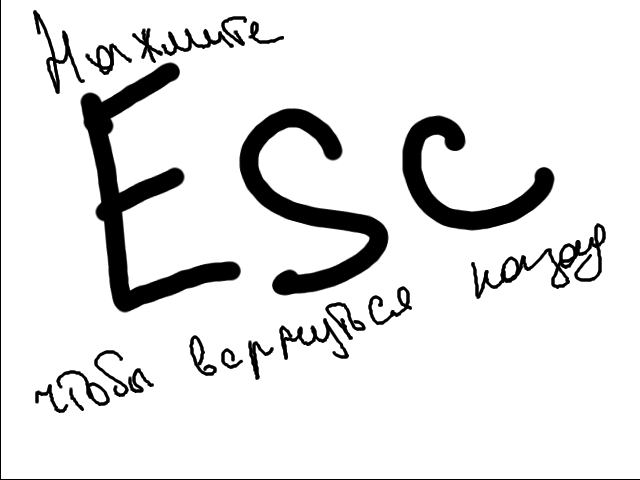 Нажмите
Esc
чтобы вернуться назад